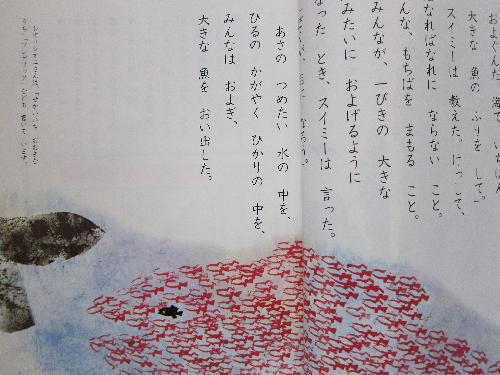 およぐんだ。海で
大きな 魚の ふりを して。」
スイミーは 教えた。けっして、
はなればなれに ならない こと。
みんな、もちばを まもる こと。
みんなが、一ぴきの 大きな
魚みたいに およげるように
なった とき、スイミーは 言った。
あさの つめたい 水の 中を、
ひるの かがやく ひかりの 中を、
みんなは およぎ、
大きな 魚を おい出した。